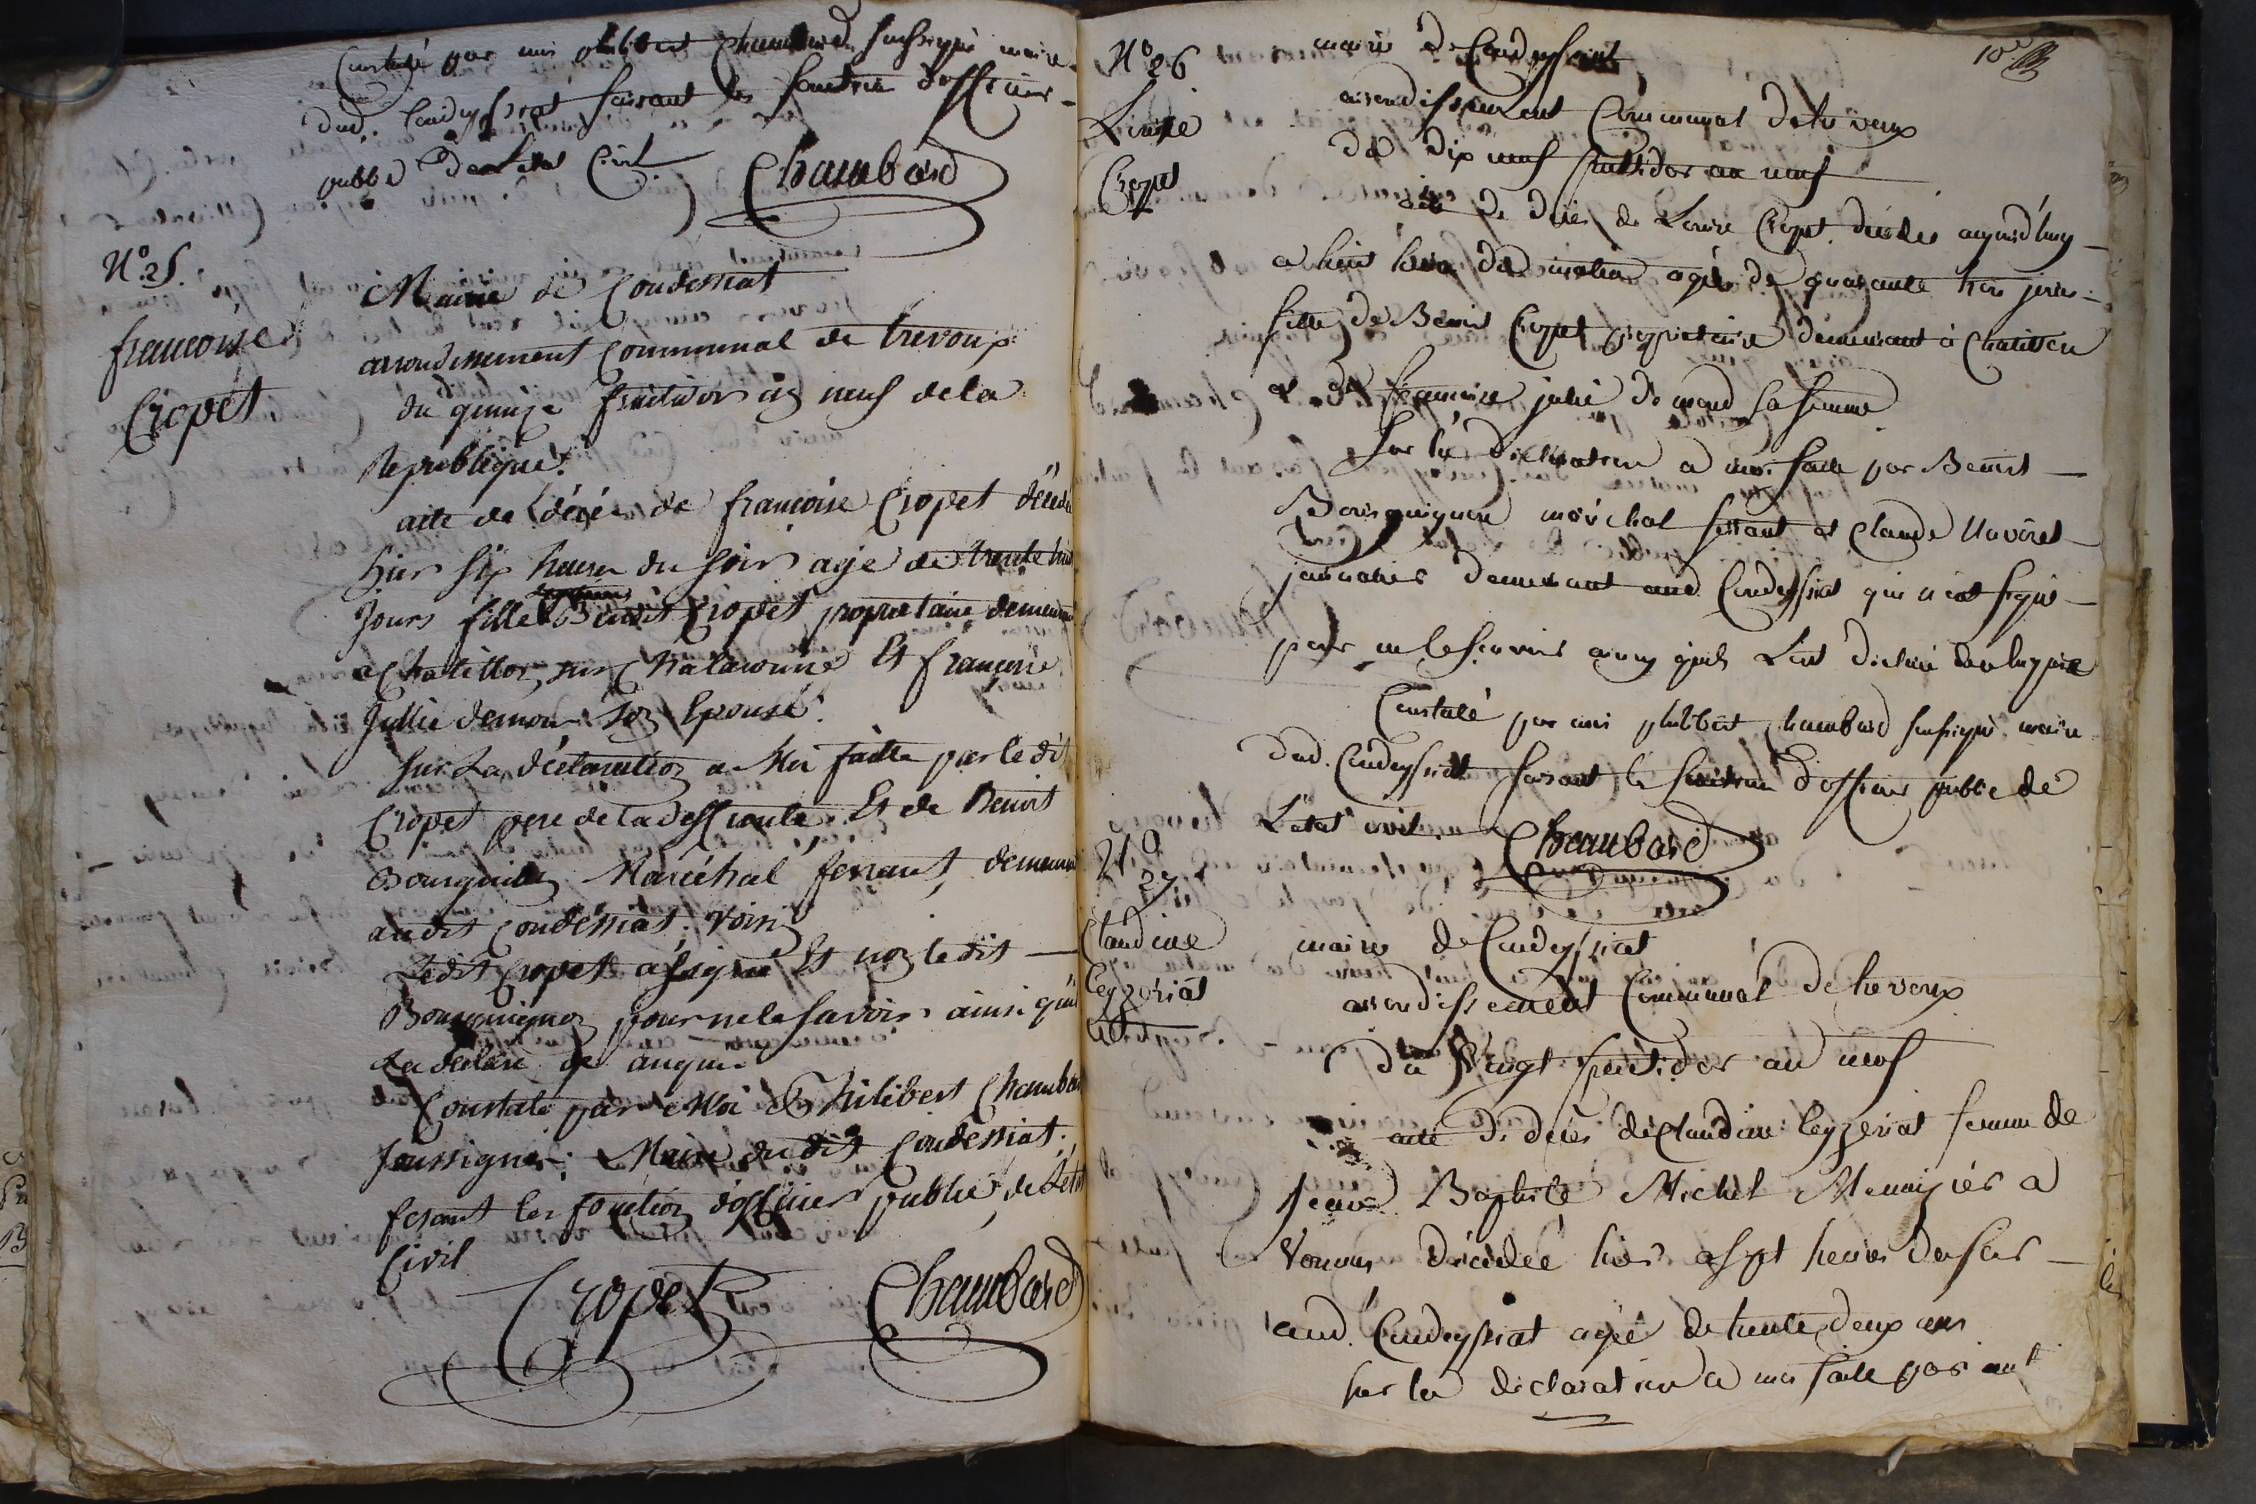 Constaté par moi philibert Chambard soussigné maire
dud. Condeyssiat faisant les fonction d'officier
public de L'état Civil
Chambard
N° 25.
françoise
Cropet
Mairie de Condessiat
arrondissement Communal de trevoux
du quinze fructidor an neuf de la
Republique.
acte de décés de françoise Cropet décédé
hier six heures du soir agé de trente huit
Jours fille Benoit Cropet propriétaire demeurant
a Chatillon sur Chalaronne Et françoise
Jullie demon son Epouse.
sur La déclaration a Moi faitte par le dit
Cropet pere de la deffuncte Et de Benoit
Bourguignon Maréchal ferrant, demeurant
audit Condessiat. voisin
Ledit Cropet a signé Et non le dit
Bourguignon pour ne le savoir ainsi qu'il
La declaré de anquis
Constaté par Moi Philibert Chambard
soussigné Maire du dit Condessiat
fesant les fonction d'officier public de L'état
Civil
Cropet Chambard
10e
N° 26
Louise
Cropet
mairie de Condeyssiat
arrondissement Communal de trevoux
du dix neuf fructidor an neuf
acte de décés de Louise Cropet décédée aujourd'huy
a huit heures du matin agée de quarante trois jours
fille de Benoit Cropet propriétaire demeurant à Chatillon
et de françoise julie de mond sa femme
Sur la déclaration a moi faite par Benoit
Bourguignon maréchal ferrant et Claude Navoret
journalier demeurant aud. Condeyssiat qui n'ont signé
pour ne le scavoir ainsy qu'ils L'ont déclaré
Constaté par moi philibert Chambard soussigné maire
dud. Condeyssiat faisant les fonction d'officier public de
L'état civil.
Chambard
N°
27
Claudine
Ceyzeriat
mairie de Condeyssiat
arrondissement Communal de trevoux
du Vingt fructidor an neuf
acte de décés de Claudine Ceyzeriat femme de
Jean Baptiste Michel Menuizier a
Vonnas décédée hier a sept heures du soir
aud. Condeyssiat agée de trente deux ans
sur la déclaration a moi faite par